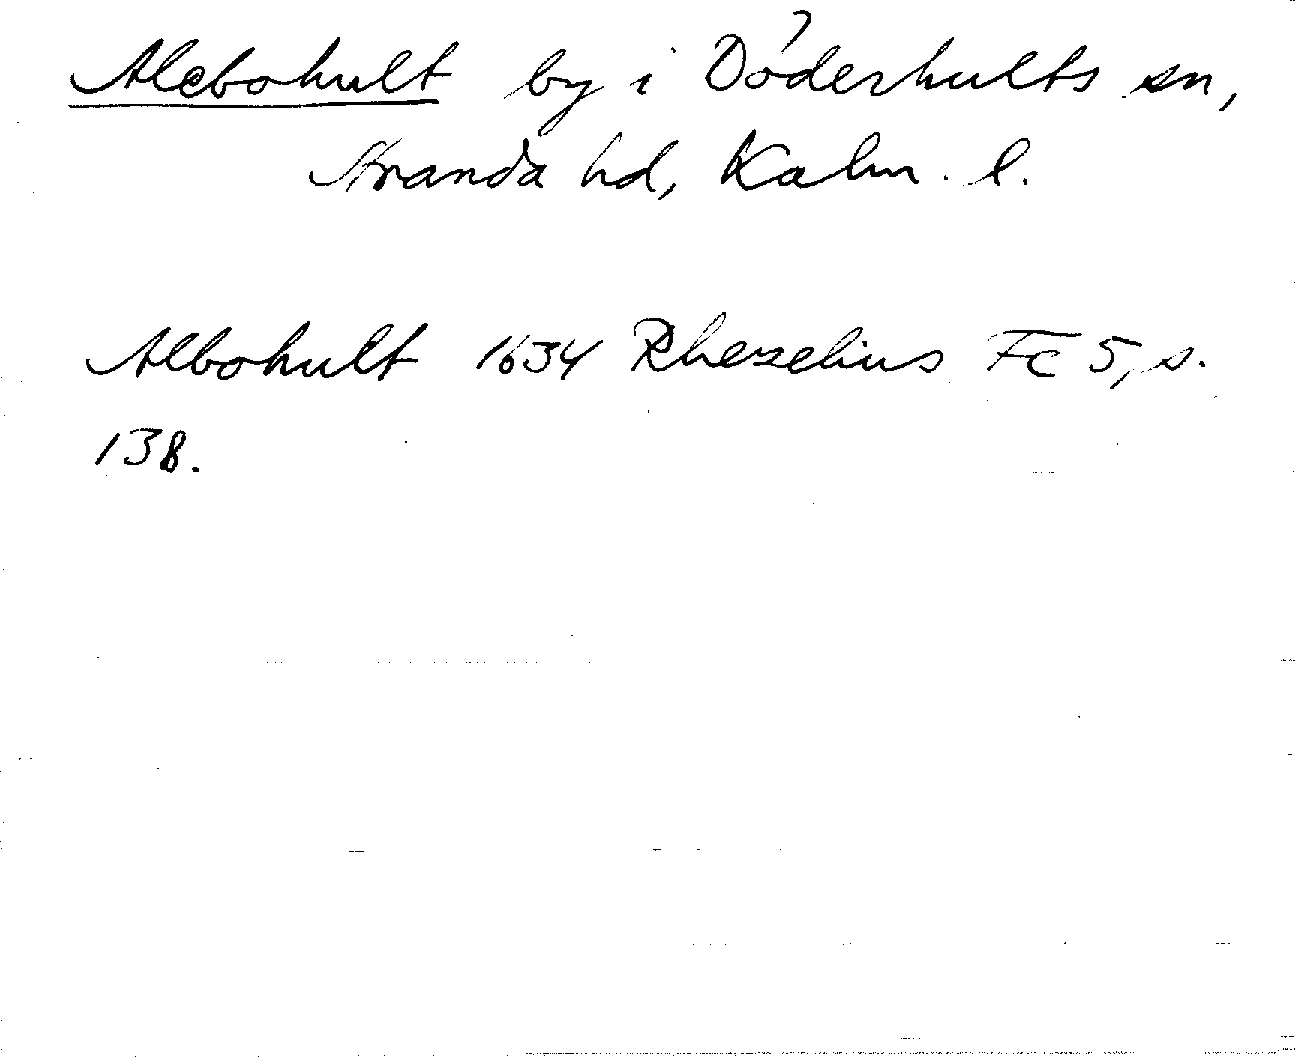 Alebohult by i Döderhults sn,
Stranda hd, Kalm. l.
Albohult 1634 Rhezelius Fc 5, s.
138.